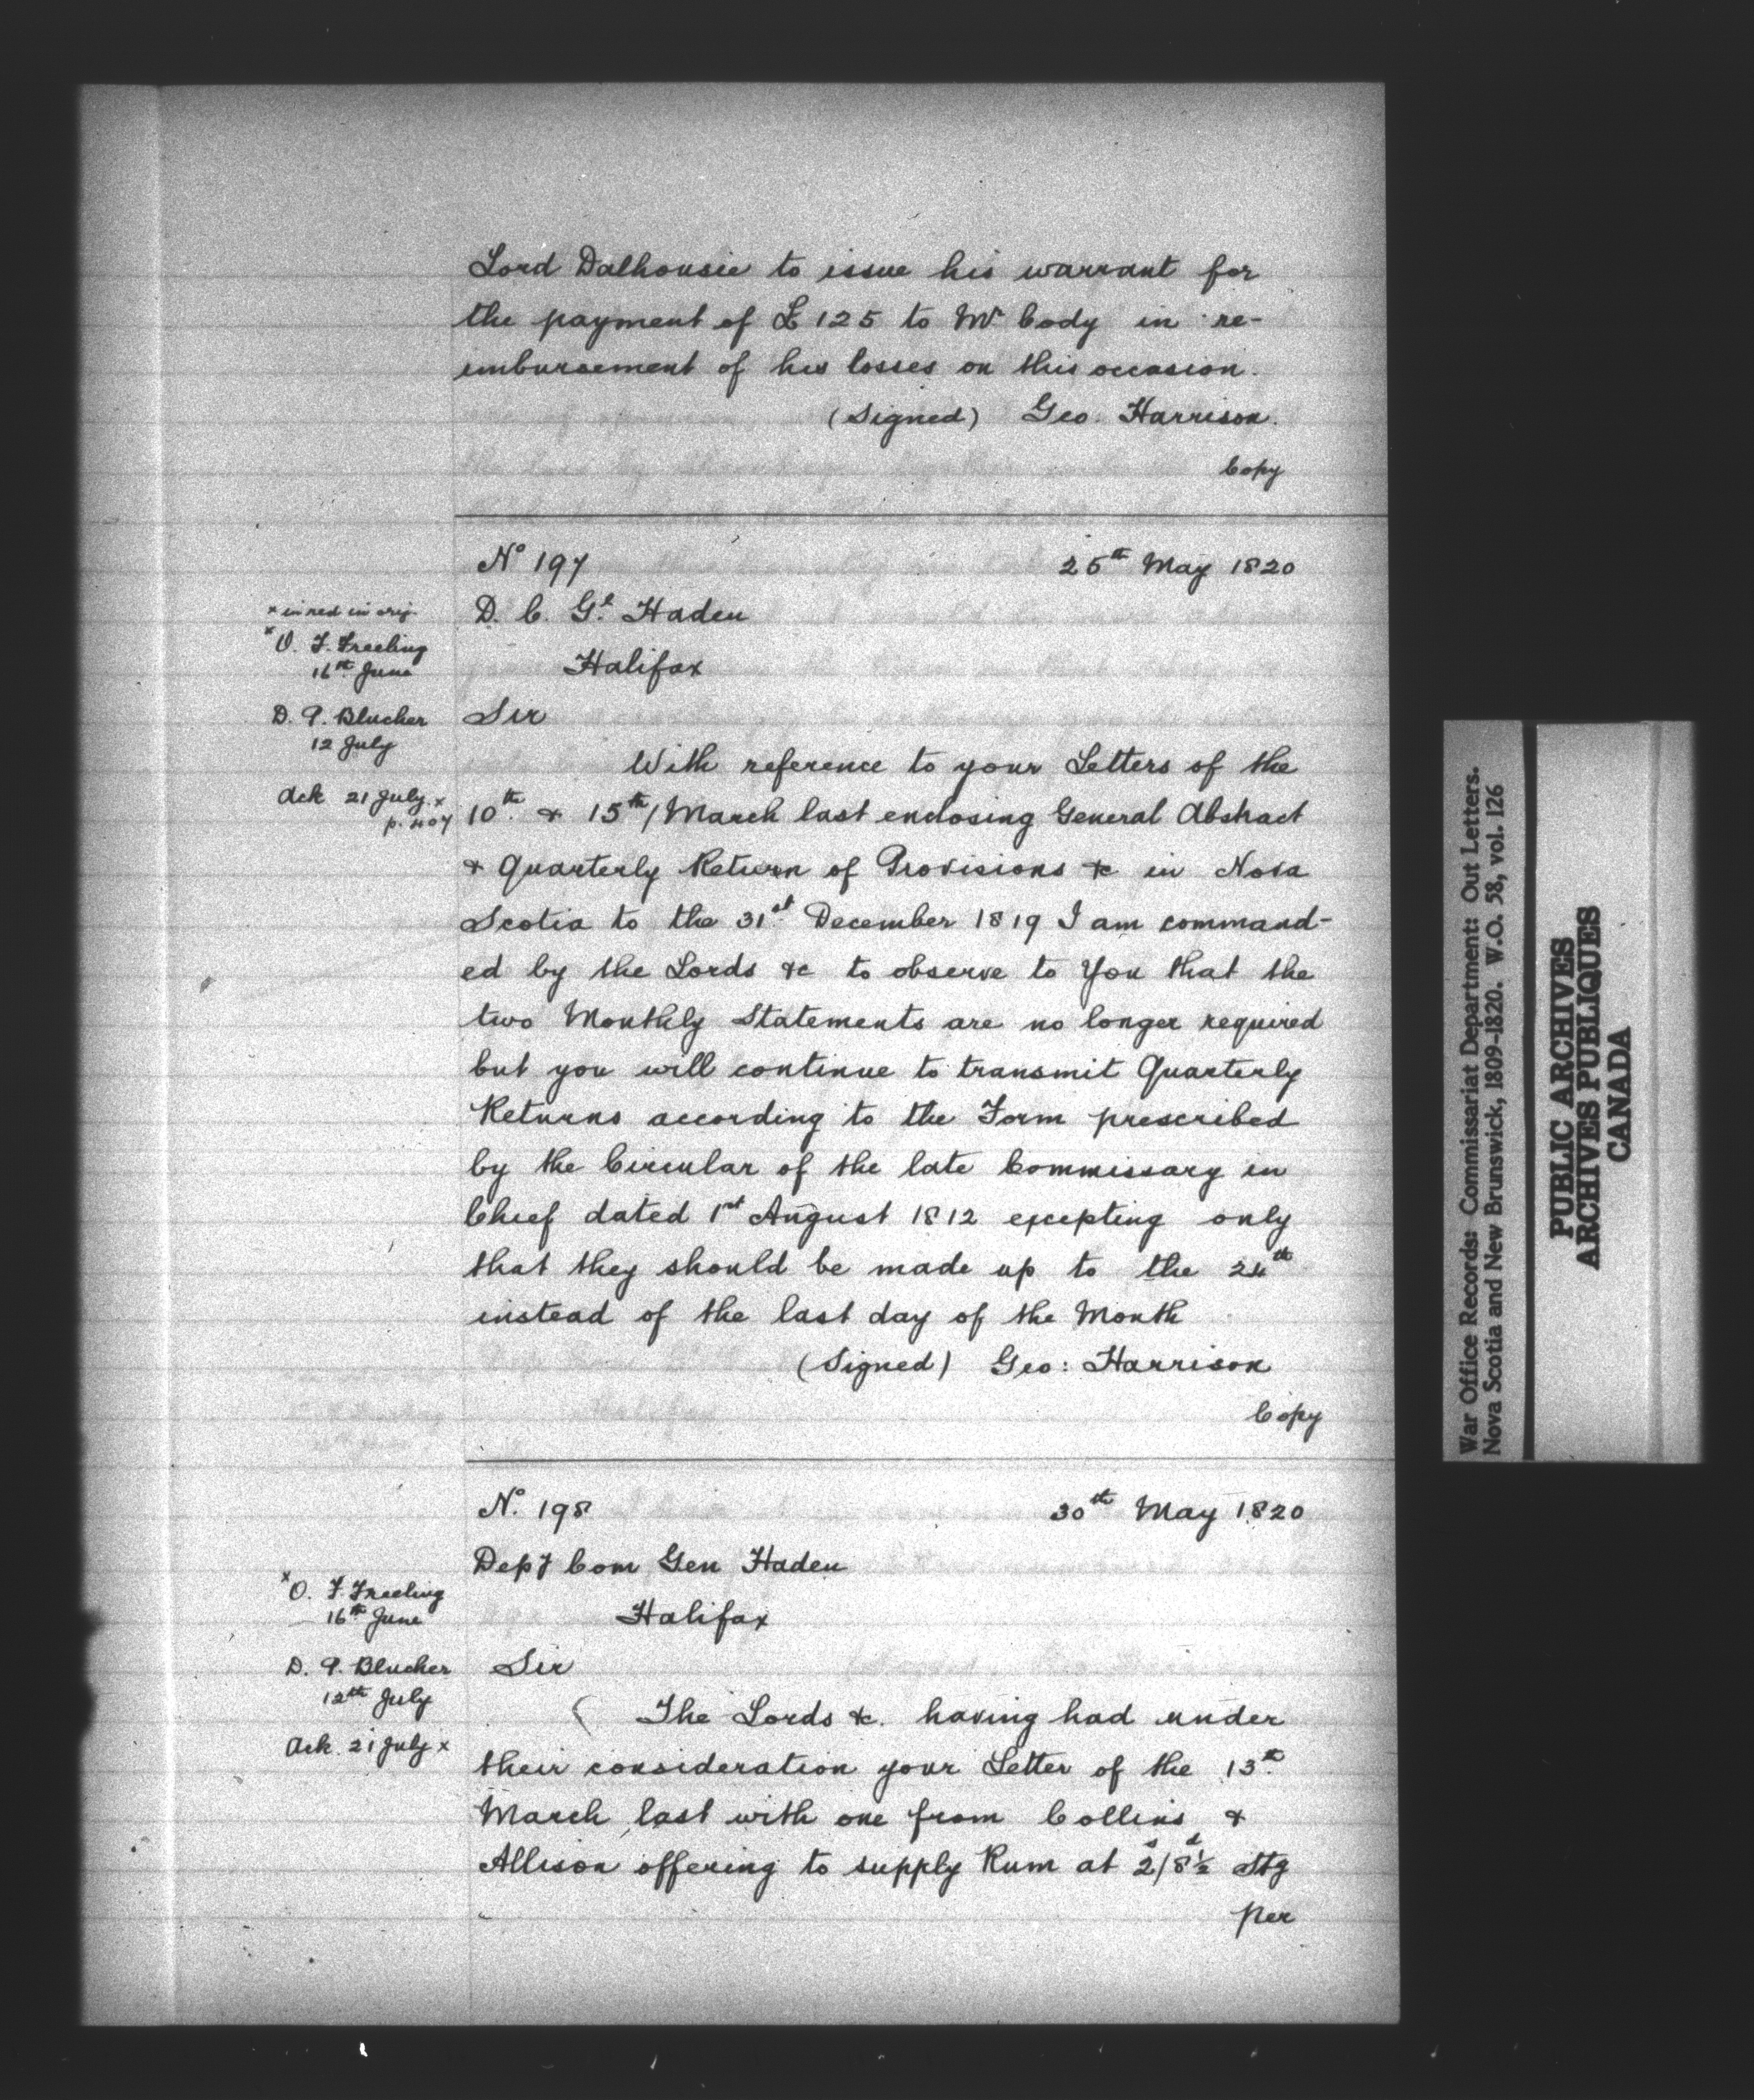 Lord Dalhousie to issue his warrant for
the payment of £125 to Mr Cody in re-
imbursement of his losses on this occasion.
(Signed) Geo. Harrison.
Copy
No 197 25th May 1820
D. C. Gl. Haden
Halifax
x in red in orig.
x O. F. Freeling
16th June
D. P. Blucher
12 July
Ack 21 July. x
p. 407
Sir
With reference to your Letters of the
10th. & 15th/ March last enclosing General Abstract
& Quarterly Return of Provisions &c in Nova
Scotia to the 31st. December 1819 I am command-
ed by the Lords &c to observe to You that the
two Monthly Statements are no longer required
but you will continue to transmit Quarterly
Returns according to the Form prescribed
by the Circular of the late Commissary in
Chief dated 1st August 1812 excepting only
that they should be made up to the 24th
instead of the last day of the Month
(Signed) Geo: Harrison
Copy
No. 198 30th May 1820
Depy Com Gen Haden
Halifax
x O. F. Freeling
16th June
D. P. Blucher
12th July
Ack. 21 July x
Sir
( The Lords &c. having had under
their consideration your Letter of the 13th.
March last with one from Collins &
Allison offering to supply Rum at 2s/8d½ Stg
per
War Office Records: Commissariat Department: Out Letters.
Nova Scotia and New Brunswick, 1809-1820. W.O. 58, vol. 126
PUBLIC ARCHIVES
ARCHIVES PUBLIQUES
CANADA